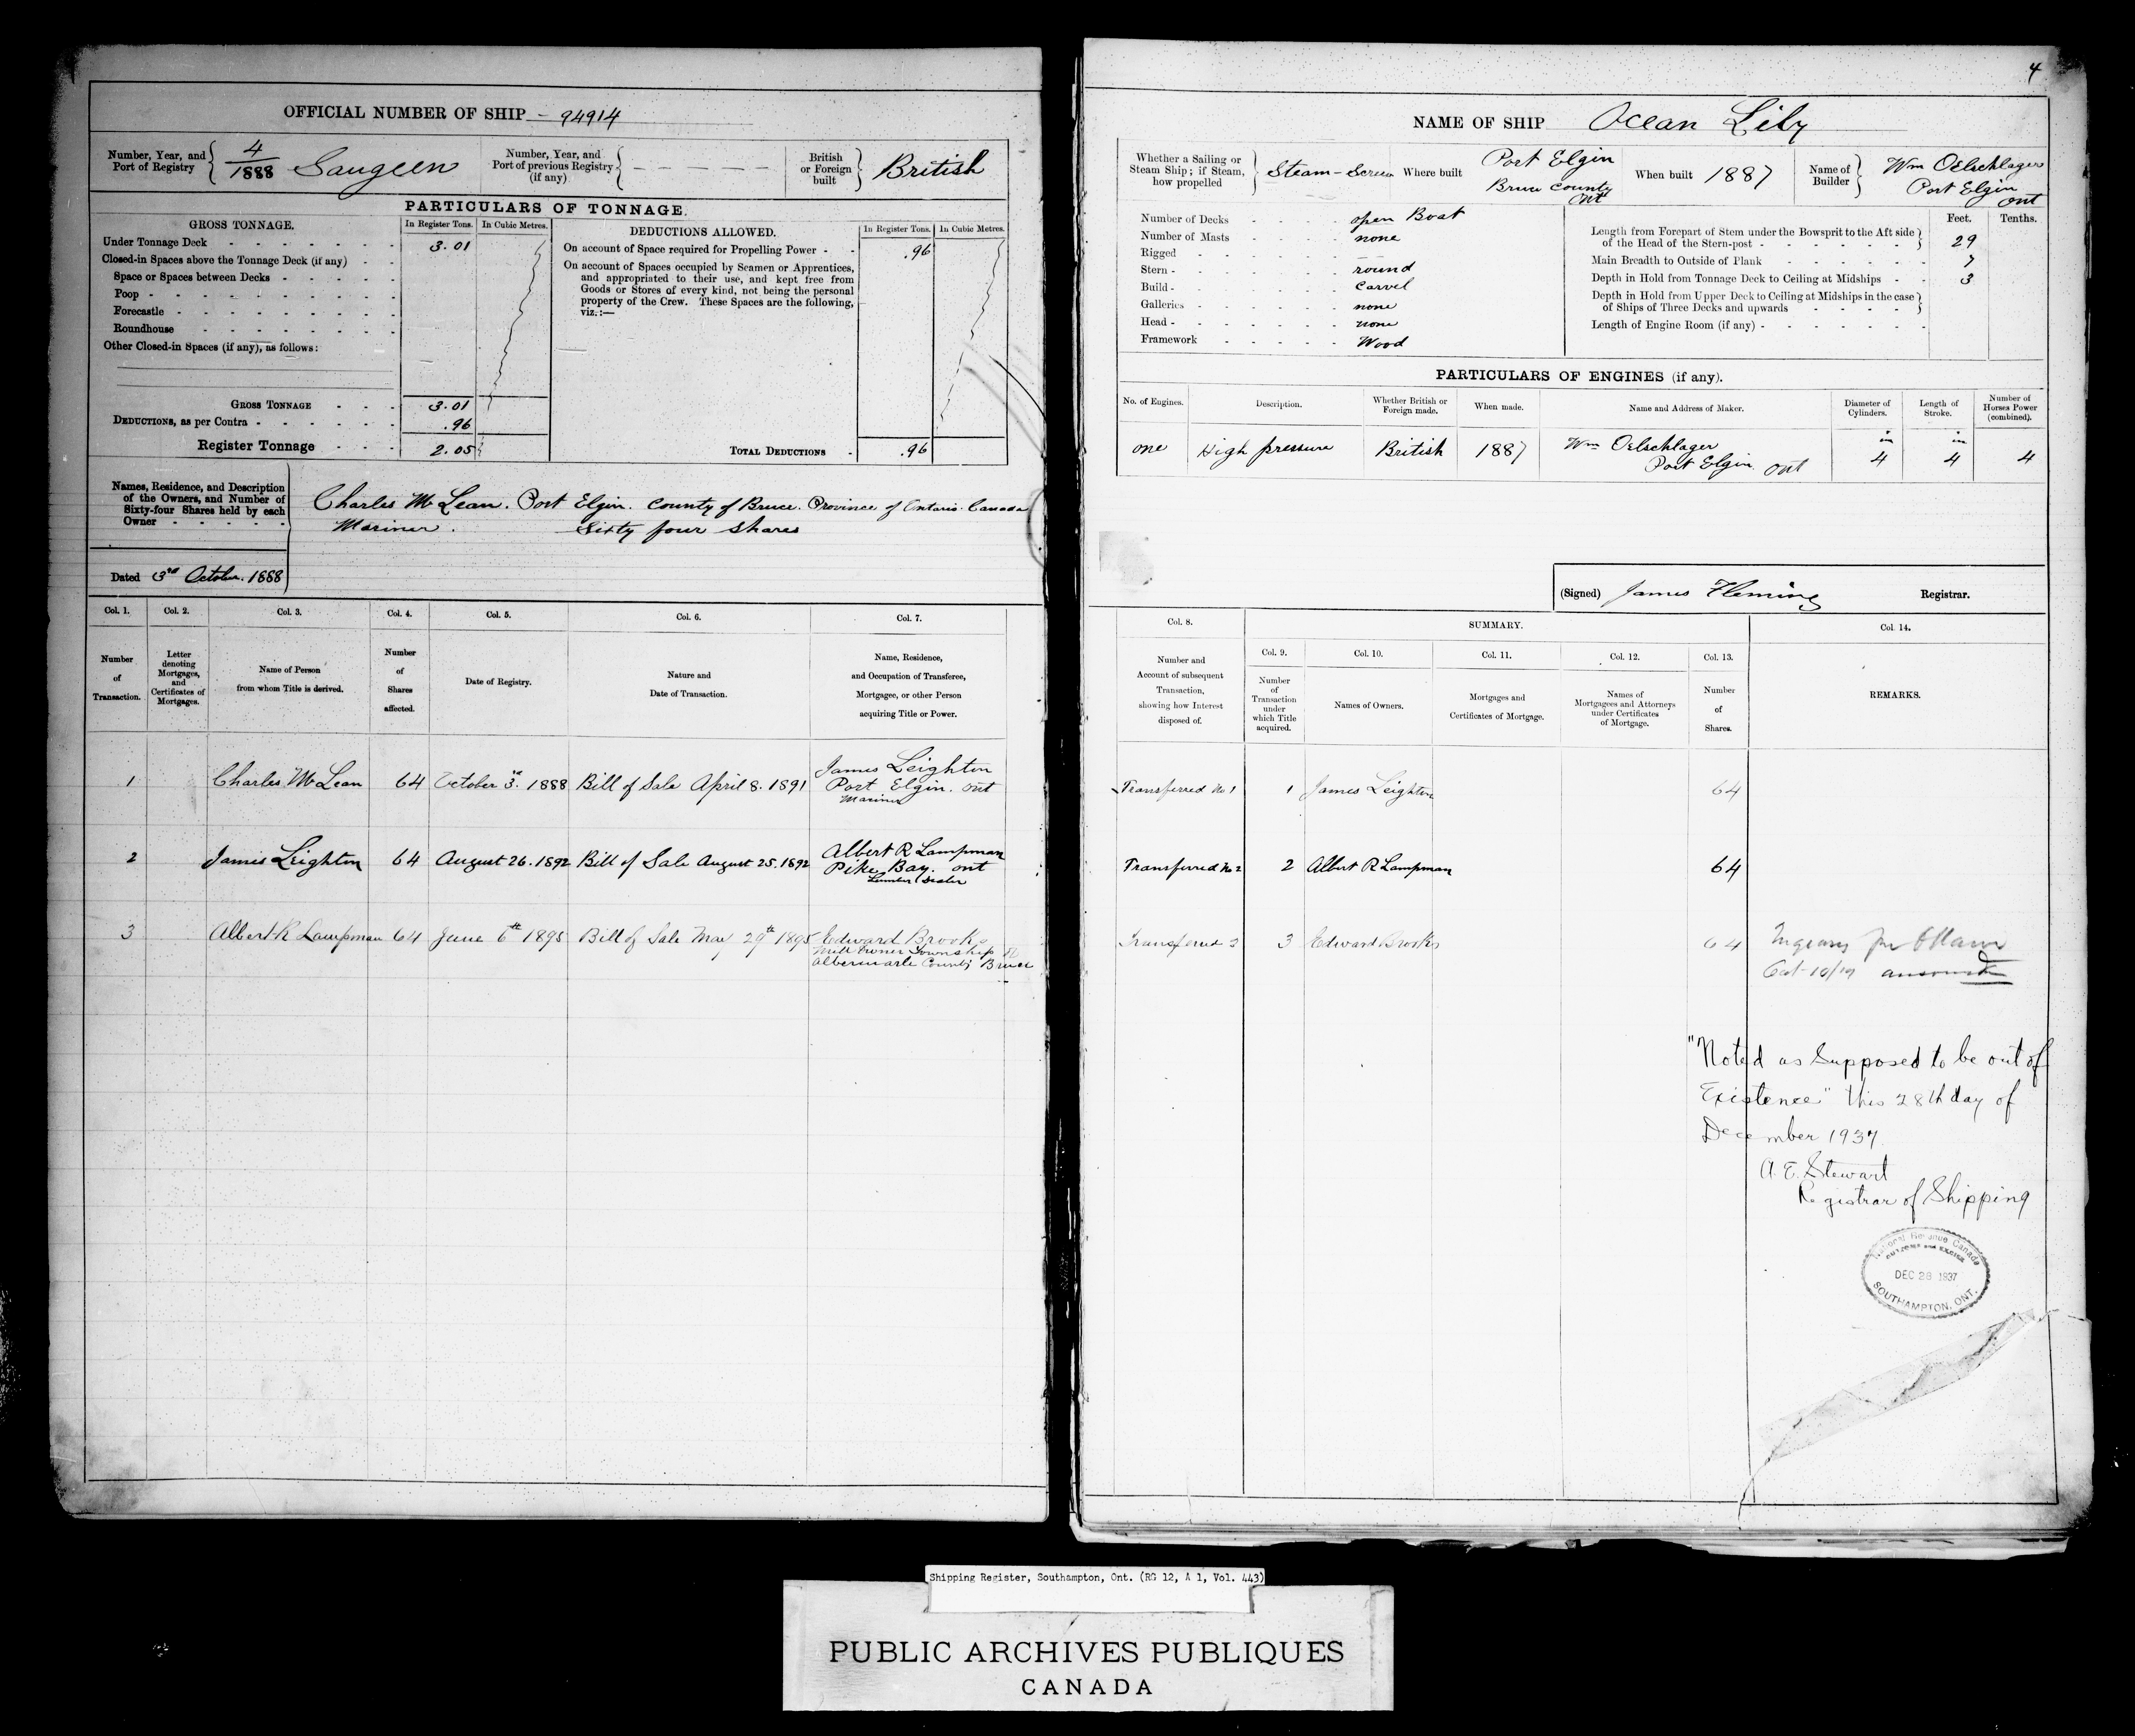 OFFICIAL NUMBER OF SHIP - 94914
Number, Year, and Port of Registry
4/1888 Saugeen
Number, Year, and Port of previous Registry (if any)
British or Foreign built
British
PARTICULARS OF TONNAGE.
GROSS TONNAGE.
In Register Tons.
In Cubic Metres.
Under Tonnage Deck - 3.01
Closed-in Spaces above the Tonnage Deck (if any)
Space or Spaces between Decks
Poop
Forecastle
Roundhouse
Other Closed-in Spaces (if any), as follows:
GROSS TONNAGE 3.01
DEDUCTIONS, as per Contra .96
Register Tonnage 2.05
DEDUCTIONS ALLOWED.
In Register Tons.
In Cubic Metres.
On account of Space required for Propelling Power - .96
On account of Spaces occupied by Seamen or Apprentices,
and appropriated to their use, and kept free from
Goods or Stores of every kind, not being the personal
property of the Crew. These Spaces are the following,
viz.:—
TOTAL DEDUCTIONS - .96
Names, Residence, and Description
of the Owners, and Number of
Sixty-four Shares held by each
Owner
Charles McLean. Port Elgin. County of Bruce. Province of Ontario. Canada
Mariner. Sixty four Shares
Dated 3rd October. 1888
Col. 1. Col. 2. Col. 3. Col. 4. Col. 5. Col. 6. Col. 7.
Number of Transaction.
Letter denoting Mortgages, and Certificates of Mortgages.
Name of Person from whom Title is derived.
Number of Shares affected.
Date of Registry.
Nature and Date of Transaction.
Name, Residence, and Occupation of Transferee, Mortgagee, or other Person acquiring Title or Power.
1 Charles McLean 64 October 3rd. 1888 Bill of Sale April 8. 1891 James Leighton
Port Elgin. Ont
Mariner
2 James Leighton 64 August 26. 1892 Bill of Sale August 25. 1892 Albert R Lampman
Pike Bay. Ont
Lumber Dealer
3 Albert R Lampman 64 June 6th 1895 Bill of Sale May 29th 1895 Edward Brooks
Mill Owner Township
Albermarle County Bruce
4
NAME OF SHIP Ocean Lily
Whether a Sailing or Steam Ship; if Steam, how propelled
Steam-Screw
Where built
Port Elgin
Bruce County
Ont
When built 1887
Name of Builder
Wm Oelschlager
Port Elgin
Ont
Number of Decks - open Boat
Number of Masts - none
Rigged
Stern - round
Build - Carvel
Galleries - none
Head - none
Framework - Wood
Feet. Tenths.
Length from Forepart of Stem under the Bowsprit to the Aft side
of the Head of the Stern-post - 29
Main Breadth to Outside of Plank - 7
Depth in Hold from Tonnage Deck to Ceiling at Midships - 3
Depth in Hold from Upper Deck to Ceiling at Midships in the case
of Ships of Three Decks and upwards
Length of Engine Room (if any)
PARTICULARS OF ENGINES (if any).
No. of Engines.
Description.
Whether British or Foreign made.
When made.
Name and Address of Maker.
Diameter of Cylinders.
Length of Stroke.
Number of Horses Power (combined).
one High pressure British 1887 Wm Oelschlager
Port Elgin Ont
in 4 in 4 4
(Signed) James Fleming Registrar.
Col. 8. SUMMARY. Col. 14.
Col. 9. Col. 10. Col. 11. Col. 12. Col. 13.
Number and Account of subsequent Transaction, showing how Interest disposed of.
Number of Transaction under which Title acquired.
Names of Owners.
Mortgages and Certificates of Mortgage.
Names of Mortgagees and Attorneys under Certificates of Mortgage.
Number of Shares.
REMARKS.
Transferred No 1 1 James Leighton 64
Transferred No 2 2 Albert R Lampman 64
Transferred 3 3 Edward Brooks 64
Oct 10/19
"Noted as Supposed to be out of
Existence" this 28th day of
December 1937.
A. E. Stewart
Registrar of Shipping
National Revenue Canada
CUSTOMS AND EXCISE
DEC 28 1937
SOUTHAMPTON, ONT.
Shipping Register, Southampton, Ont. (RG 12, A 1, Vol. 443)
PUBLIC ARCHIVES PUBLIQUES
CANADA